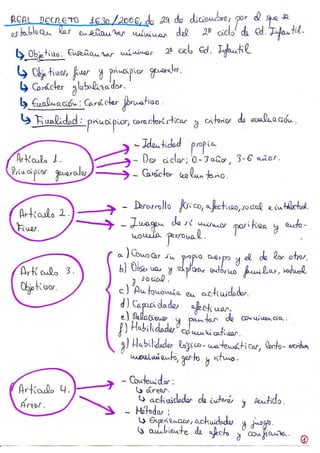 REAL DECRETO 1630/2006, de 29 de diciembre, por el que se
establecen las enseñanzas mínimas del 2º ciclo de Ed. Infantil.
Objetivo: Enseñanzas mínimas 2º ciclo Ed. Infantil
Objetivos, fines y principios generales.
Carácter globalizador.
Evaluación: Carácter formativo.
Finalidad: principios, características y criterios de evaluación.
Artículo 1.
Principios generales
- Identidad propia
- Dos ciclos: 0-3 años, 3-6 años.
- Carácter voluntario.
Artículo 2.
Fines.
- Desarrollo físico, afectivo, social e intelectual.
- Imagen de sí mismos positiva y auto-
nomía personal.
Artículo 3.
Objetivos.
a) Conocer su propio cuerpo y el de los otros.
b) Observar y explorar entorno familiar, natural
y social.
c) Autonomía en actividades.
d) Capacidades afectivas.
e) Relacionarse y pautas de convivencia.
f) Habilidades comunicativas.
g) Habilidades lógico-matemáticas, lecto-escritura
movimiento, gesto y ritmo.
Artículo 4.
Áreas.
- Contenidos:
áreas.
actividades de interés y sentido.
- Métodos:
Experiencias, actividades y juego.
ambiente de afecto y confianza.
①